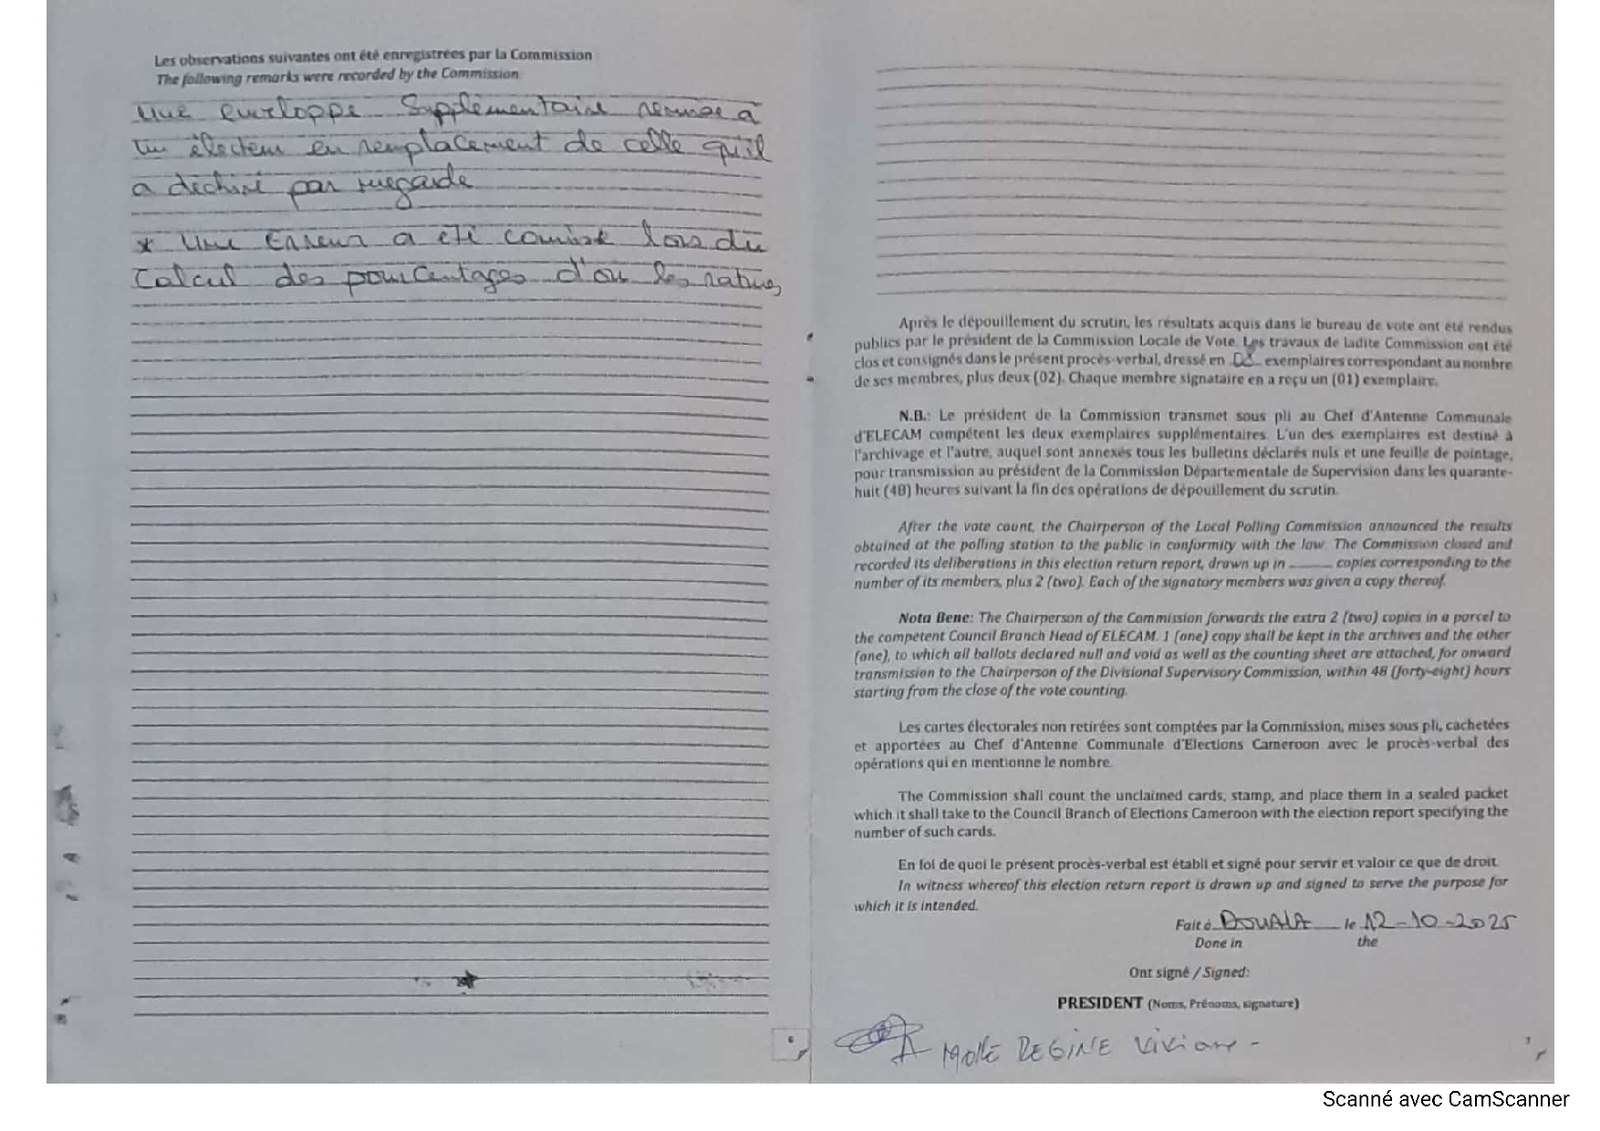 Les observations suivantes ont été enregistrées par la Commission
The following remarks were recorded by the Commission
Une enveloppe Supplémentaire remise à
un électeur en remplacement de celle qu'il
a déchiré par megarde
* Une Erreur a été comise lors du
Calcul des pourcentages d'où les ratures
6
Après le dépouillement du scrutin, les résultats acquis dans le bureau de vote ont été rendus
publics par le président de la Commission Locale de Vote. Les travaux de ladite Commission ont été
clos et consignés dans le présent procès-verbal, dressé en exemplaires correspondant au nombre
de ses membres, plus deux (02). Chaque membre signataire en a reçu un (01) exemplaire.
N.B.: Le président de la Commission transmet sous pli au Chef d'Antenne Communale
d'ELECAM compétent les deux exemplaires supplémentaires. L'un des exemplaires est destiné à
l'archivage et l'autre, auquel sont annexés tous les bulletins déclarés nuls et une feuille de pointage,
pour transmission au président de la Commission Départementale de Supervision dans les quarante-
huit (48) heures suivant la fin des opérations de dépouillement du scrutin.
After the vote count, the Chairperson of the Local Polling Commission announced the results
obtained at the polling station to the public in conformity with the law. The Commission closed and
recorded its deliberations in this election return report, drawn up in ........ copies corresponding to the
number of its members, plus 2 (two). Each of the signatory members was given a copy thereof.
Nota Bene: The Chairperson of the Commission forwards the extra 2 (two) copies in a parcel to
the competent Council Branch Head of ELECAM. 1 (one) copy shall be kept in the archives and the other
(one), to which all ballots declared null and void as well as the counting sheet are attached, for onward
transmission to the Chairperson of the Divisional Supervisory Commission, within 48 (forty-eight) hours
starting from the close of the vote counting.
Les cartes électorales non retirées sont comptées par la Commission, mises sous pli, cachetées
et apportées au Chef d'Antenne Communale d'Elections Cameroon avec le procès-verbal des
opérations qui en mentionne le nombre.
The Commission shall count the unclaimed cards, stamp, and place them in a sealed packet
which it shall take to the Council Branch of Elections Cameroon with the election report specifying the
number of such cards.
En foi de quoi le présent procès-verbal est établi et signé pour servir et valoir ce que de droit
In witness whereof this election return report is drawn up and signed to serve the purpose for
which it is intended.
Fait à DOUALA le 12-10-2025
Done in the
Ont signé / Signed:
PRESIDENT (Noms, Prénoms, signature)
REGINE Viviane -
7
Scanné avec CamScanner